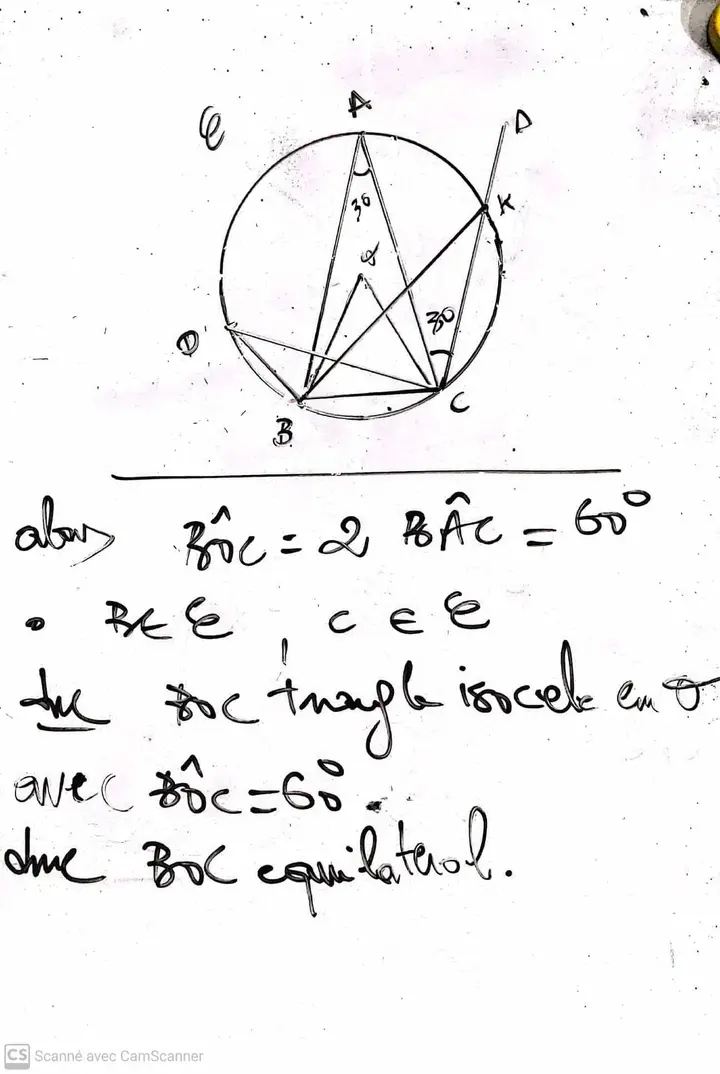 A
𝒞
D
K
30
O
30
D
C
B
alors BÔC = 2 BÂC = 60°
• B ∈ 𝒞 , C ∈ 𝒞
donc BOC triangle isocele en O
avec BÔC = 60°.
donc BOC equilateral.
CS Scanné avec CamScanner